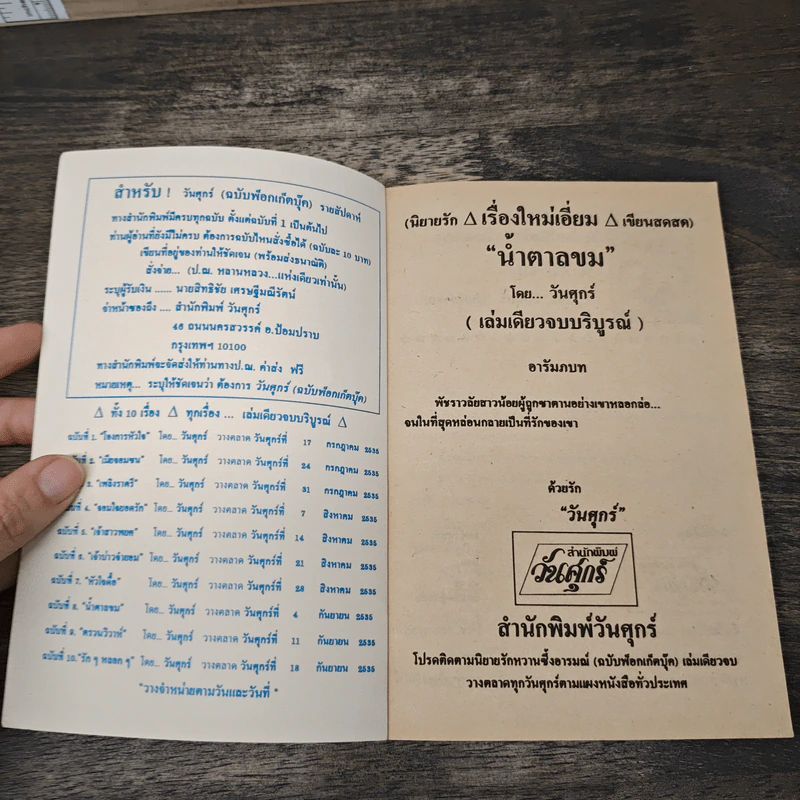 สำหรับ ! วันศุกร์ (ฉบับพ็อกเก็ตบุ๊ค) รายสัปดาห์
ทางสำนักพิมพ์มีครบทุกฉบับ ตั้งแต่ฉบับที่ 1 เป็นต้นไป
ท่านผู้อ่านที่ยังมีไม่ครบ ต้องการฉบับไหนสั่งซื้อได้ (ฉบับละ 10 บาท)
เขียนที่อยู่ของท่านให้ชัดเจน (พร้อมส่งธนาณัติ)
สั่งจ่าย... (ป.ณ. หลานหลวง...แห่งเดียวเท่านั้น)
ระบุผู้รับเงิน ...... นายสิทธิชัย เศรษฐิมณีรัตน์
จ่าหน้าซองถึง .... สำนักพิมพ์ วันศุกร์
46 ถนนนครสวรรค์ อ.ป้อมปราบ
กรุงเทพฯ 10100
ทางสำนักพิมพ์จะจัดส่งให้ท่านทางป.ณ. ค่าส่ง ฟรี
หมายเหตุ... ระบุให้ชัดเจนว่า ต้องการ วันศุกร์ (ฉบับพ็อกเก็ตบุ๊ค)
Δ ทั้ง 10 เรื่อง Δ ทุกเรื่อง ... เล่มเดียวจบบริบูรณ์ Δ
ฉบับที่ 1. "โองการหัวใจ" โดย... วันศุกร์ วางตลาด วันศุกร์ที่ 17 กรกฎาคม 2535
2. "เมียจอมซน" โดย... วันศุกร์ วางตลาด วันศุกร์ที่ 24 กรกฎาคม 2535
3. "เพลิงราตรี" โดย... วันศุกร์ วางตลาด วันศุกร์ที่ 31 กรกฎาคม 2535
ฉบับที่ 4. "จอมใจยอดรัก" โดย... วันศุกร์ วางตลาด วันศุกร์ที่ 7 สิงหาคม 2535
ฉบับที่ 5. "เจ้าสาวพยศ" โดย... วันศุกร์ วางตลาด วันศุกร์ที่ 14 สิงหาคม 2535
ฉบับที่ 6. "เจ้าบ่าวจำยอม" โดย... วันศุกร์ วางตลาด วันศุกร์ที่ 21 สิงหาคม 2535
ฉบับที่ 7. "หัวใจดื้อ" โดย... วันศุกร์ วางตลาด วันศุกร์ที่ 28 สิงหาคม 2535
ฉบับที่ 8. "น้ำตาลขม" โดย... วันศุกร์ วางตลาด วันศุกร์ที่ 4 กันยายน 2535
ฉบับที่ 9. "ตรวนวิวาห์" โดย... วันศุกร์ วางตลาด วันศุกร์ที่ 11 กันยายน 2535
ฉบับที่ 10. "รัก ๆ หลอก ๆ" โดย... วันศุกร์ วางตลาด วันศุกร์ที่ 18 กันยายน 2535
"วางจำหน่ายตามวันและวันที่ "
(นิยายรัก Δ เรื่องใหม่เอี่ยม Δ เขียนสดสด)
"น้ำตาลขม"
โดย... วันศุกร์
( เล่มเดียวจบบริบูรณ์ )
อารัมภบท
พัชราวลัยสาวน้อยผู้ถูกซาตานอย่างเขาหลอกล่อ...
จนในที่สุดหล่อนกลายเป็นที่รักของเขา
ด้วยรัก
"วันศุกร์"
สำนักพิมพ์
วันศุกร์
สำนักพิมพ์วันศุกร์
โปรดติดตามนิยายรักหวานซึ้งอารมณ์ (ฉบับพ็อกเก็ตบุ๊ค) เล่มเดียวจบ
วางตลาดทุกวันศุกร์ตามแผงหนังสือทั่วประเทศ